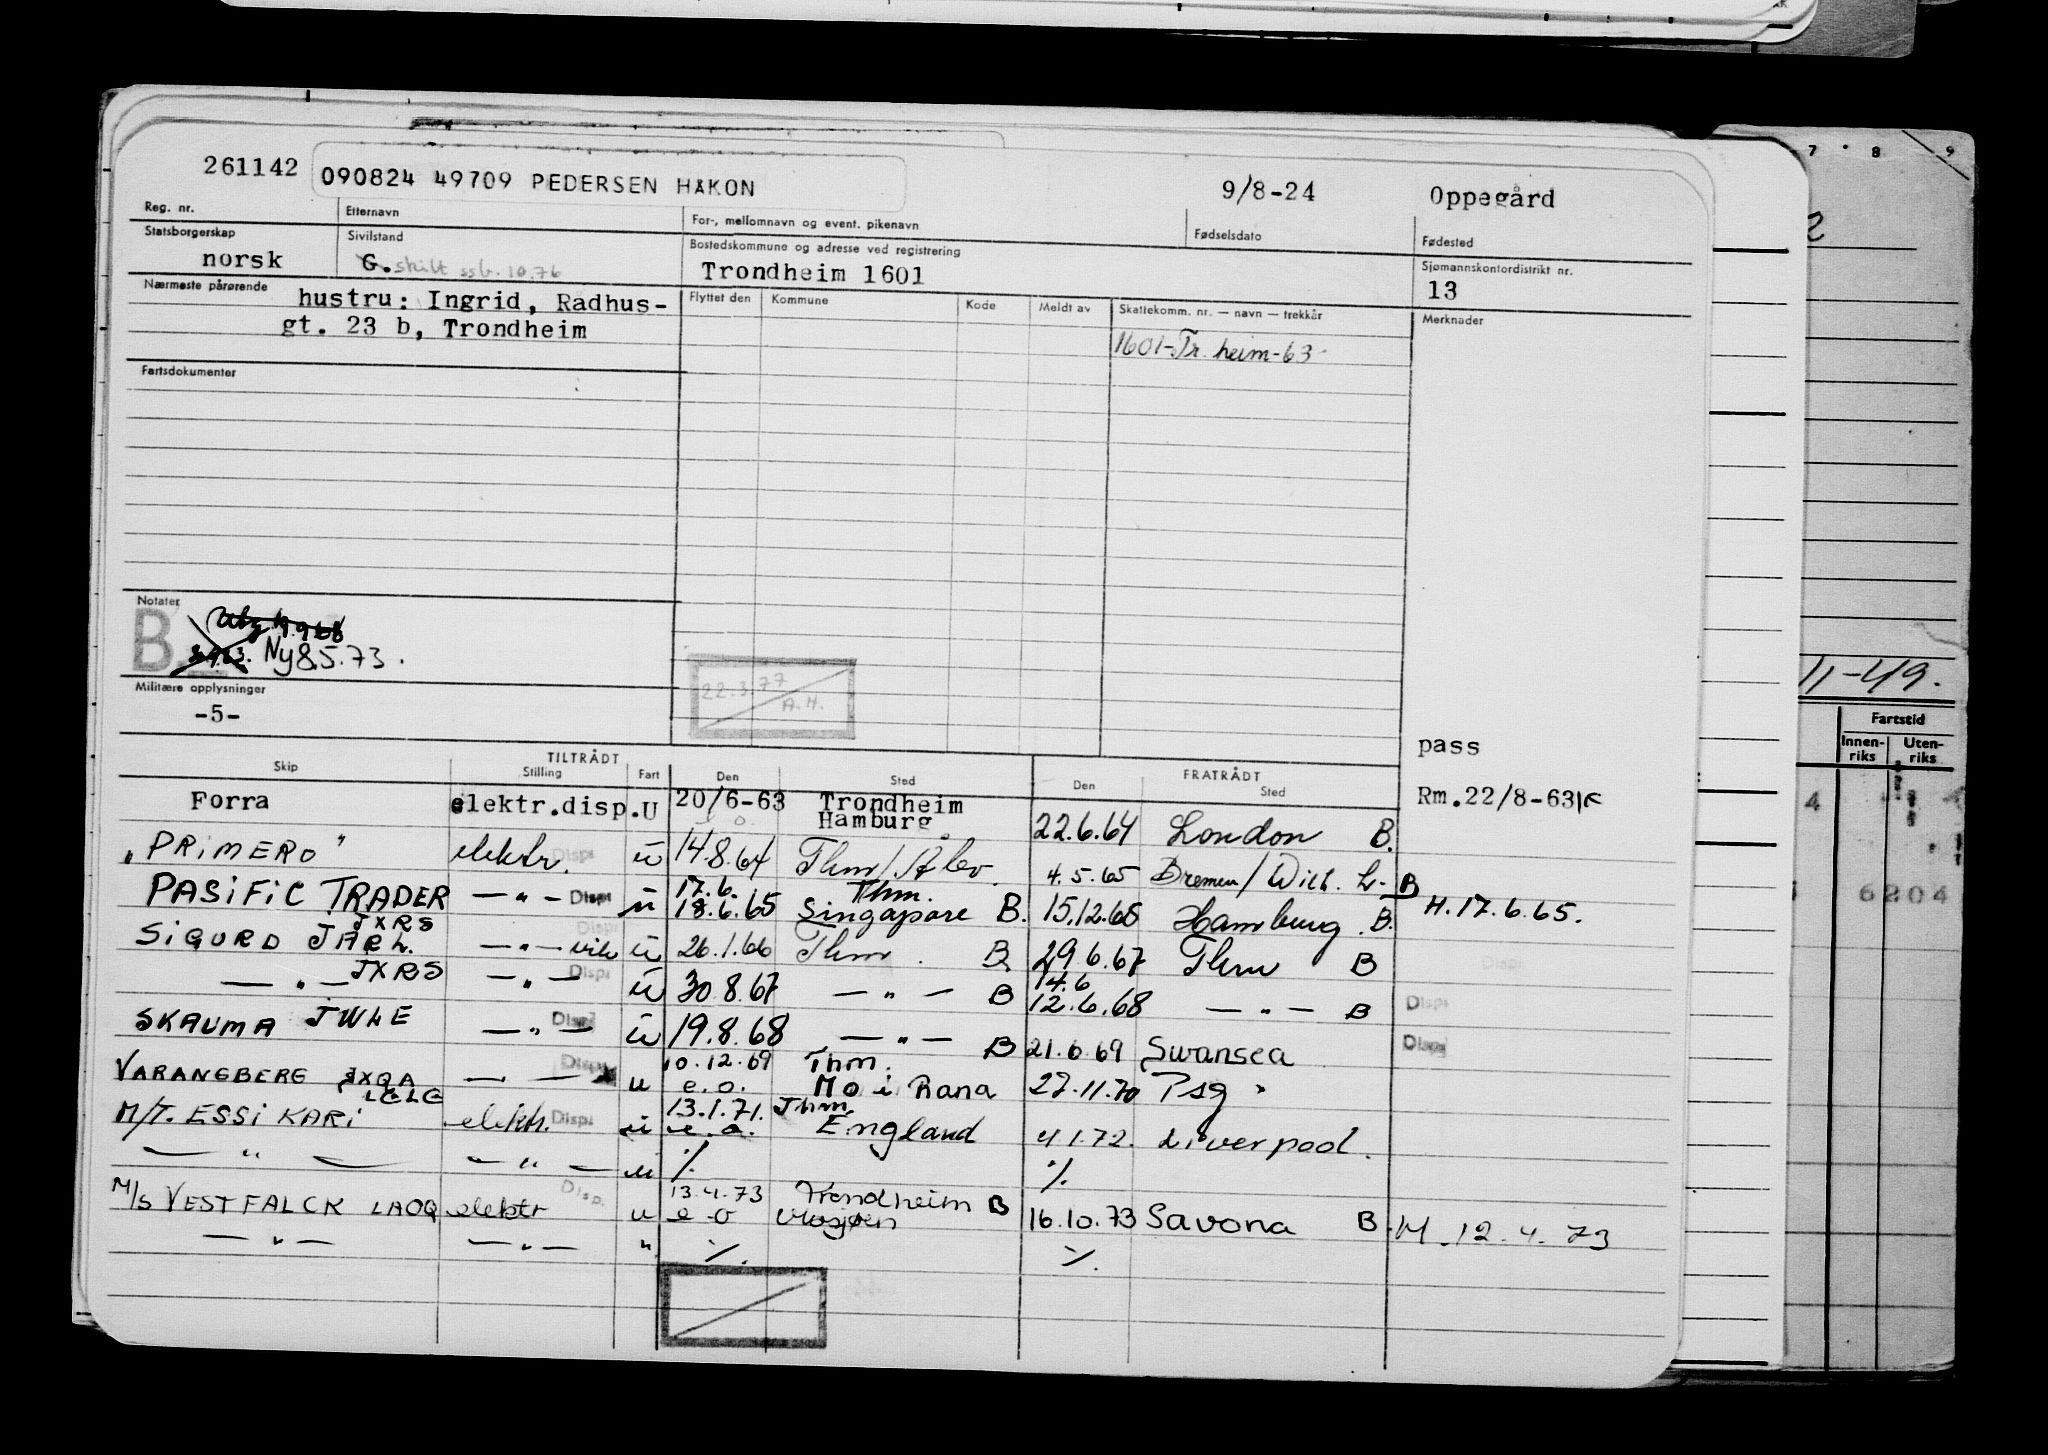 261142 090824 49709 PEDERSEN HÅKON 9/8-24 Oppegård
Reg. nr. Etternavn For-, mellomnavn og event. pikenavn Fødselsdato Fødested
Statsborgerskap Sivilstand Bostedskommune og adresse ved registrering Sjømannskontordistrikt nr.
norsk G. skilt ssb. 10.76 Trondheim 1601 13
Nærmeste pårørende hustru: Ingrid, Rådhus-
gt. 23 b, Trondheim
Flyttet den Kommune Kode Meldt av Skattekomm. nr. — navn — trekkår Merknader
1601-Tr.heim-63
Fartsdokumenter
Notater
B
Ny 8.5.73.
22.3.77
A.H.
Militære opplysninger
-5-
pass
TILTRÅDT FRATRÅDT
Skip Stilling Fart Den Sted Den Sted
Forra elektr.disp. U 20/6-63 Trondheim Hamburg 22.6.64 London B. Rm.22/8-63
"PRIMERO" elektr. Disp u 14.8.64 Thm/ 4.5.65 Bremen/Wilh. h. B
PASIFIC TRADER — " — Disp u 17.6. 18.6.65 Thm. Singapore B. 15.12.65 Hamburg B. H.17.6.65.
SIGURD JARL JXRS — " — vik u 26.1.66 Thm. B 29.6.67 Thm B
— " — JXRS — " — Disp u 30.8.67 — " — B 14.6 12.6.68 — " — B Disp
SKAUMA JWLE — " — Disp u 19.8.68 — " — B 21.6.69 Swansea Disp
VARANGBERG JXQA — — Disp u 10.12.69 e.o. Thm. Mo i Rana 27.11.70 Psg
M/T. ESSI KARI LCLG elektr. Disp u 13.1.71. e.o. Thm England 4.1.72. Liverpool.
— " — — " — u ./. ./.
M/S VESTFALCK LAOQ elektr Disp. u 13.4.73 e-o Trondheim Mosjøen B 16.10.73 Savona B. M.12.4.73
— " — — " — " ./. ./.
7 8 9
2
11-49.
Fartstid
Innen-riks Uten-riks
4
6204